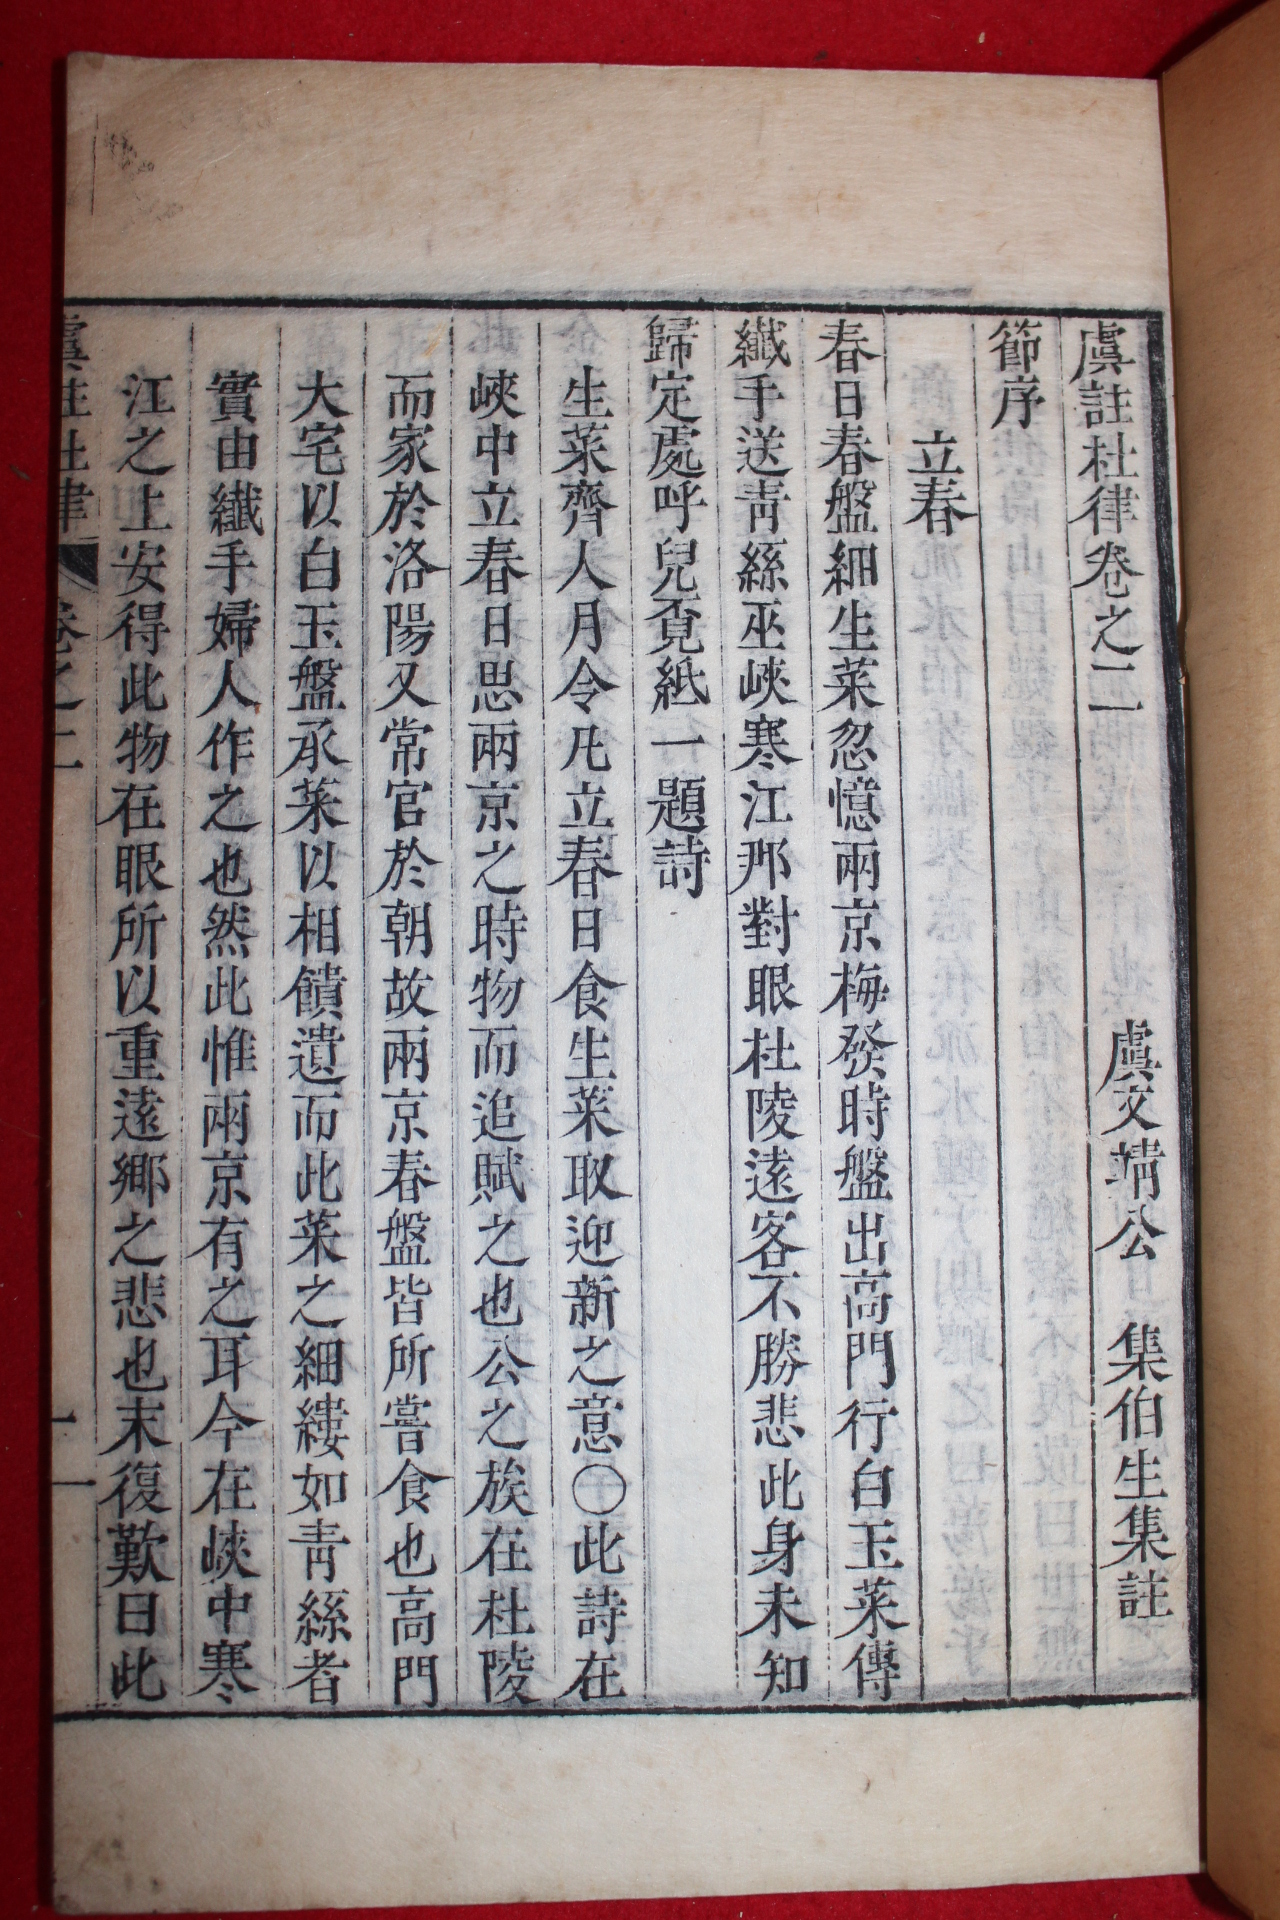 虞註杜律卷之二
虞文靖公 集伯生集註
節序
立春
春日春盤細生菜忽憶兩京梅發時盤出高門行白玉菜傳
纖手送青絲巫峽寒江那對眼杜陵遠客不勝悲此身未知
歸定處呼兒覔紙一題詩
生菜齊人月令凡立春日食生菜取迎新之意〇此詩在
峽中立春日思兩京之時物而追賦之也公之族在杜陵
而家於洛陽又常官於朝故兩京春盤皆所嘗食也高門
大宅以白玉盤承菜以相饋遺而此菜之細縷如青絲者
實由纖手婦人作之也然此惟兩京有之耳今在峽中寒
江之上安得此物在眼所以重遠鄉之悲也末復歎曰此
虞註杜律 卷之二